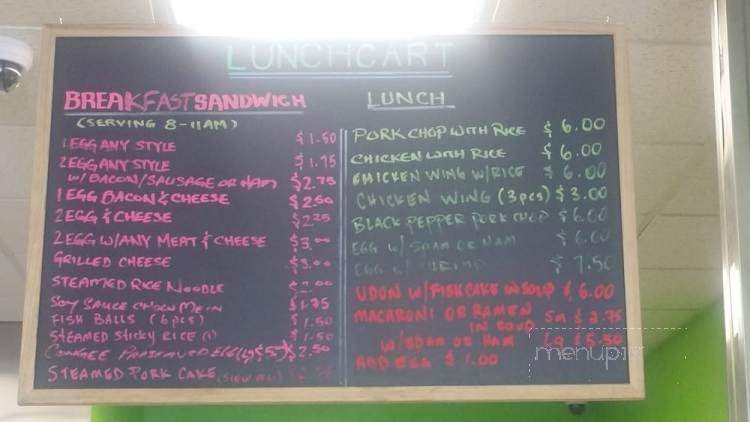 LUNCHCART
BREAKFAST SANDWICH
(SERVING 8-11AM)
1 EGG ANY STYLE $1.50
2 EGG ANY STYLE $1.75
W/ BACON/SAUSAGE OR HAM $2.75
1 EGG BACON & CHEESE $2.50
2 EGG & CHEESE $2.25
2 EGG W/ANY MEAT & CHEESE $3.00
GRILLED CHEESE $3.00
STEAMED RICE NOODLE
SOY SAUCE CHOW MEIN $1.75
FISH BALLS (6 PCS) $1.50
STEAMED STICKY RICE (1) $1.50
CONGEE PRESERVED EGG $2.50
STEAMED PORK CAKE
LUNCH
PORK CHOP WITH RICE $6.00
CHICKEN WITH RICE $6.00
CHICKEN WING W/RICE $6.00
CHICKEN WING (3pcs) $3.00
BLACK PEPPER PORK CHOP $6.00
EGG W/ SPAM OR HAM $6.00
EGG W/ $7.50
UDON W/FISHCAKE IN SOUP $6.00
MACARONI OR RAMEN
IN SOUP Sm $2.75
W/SPAM OR HAM Lg $5.50
ADD EGG $1.00
menupix